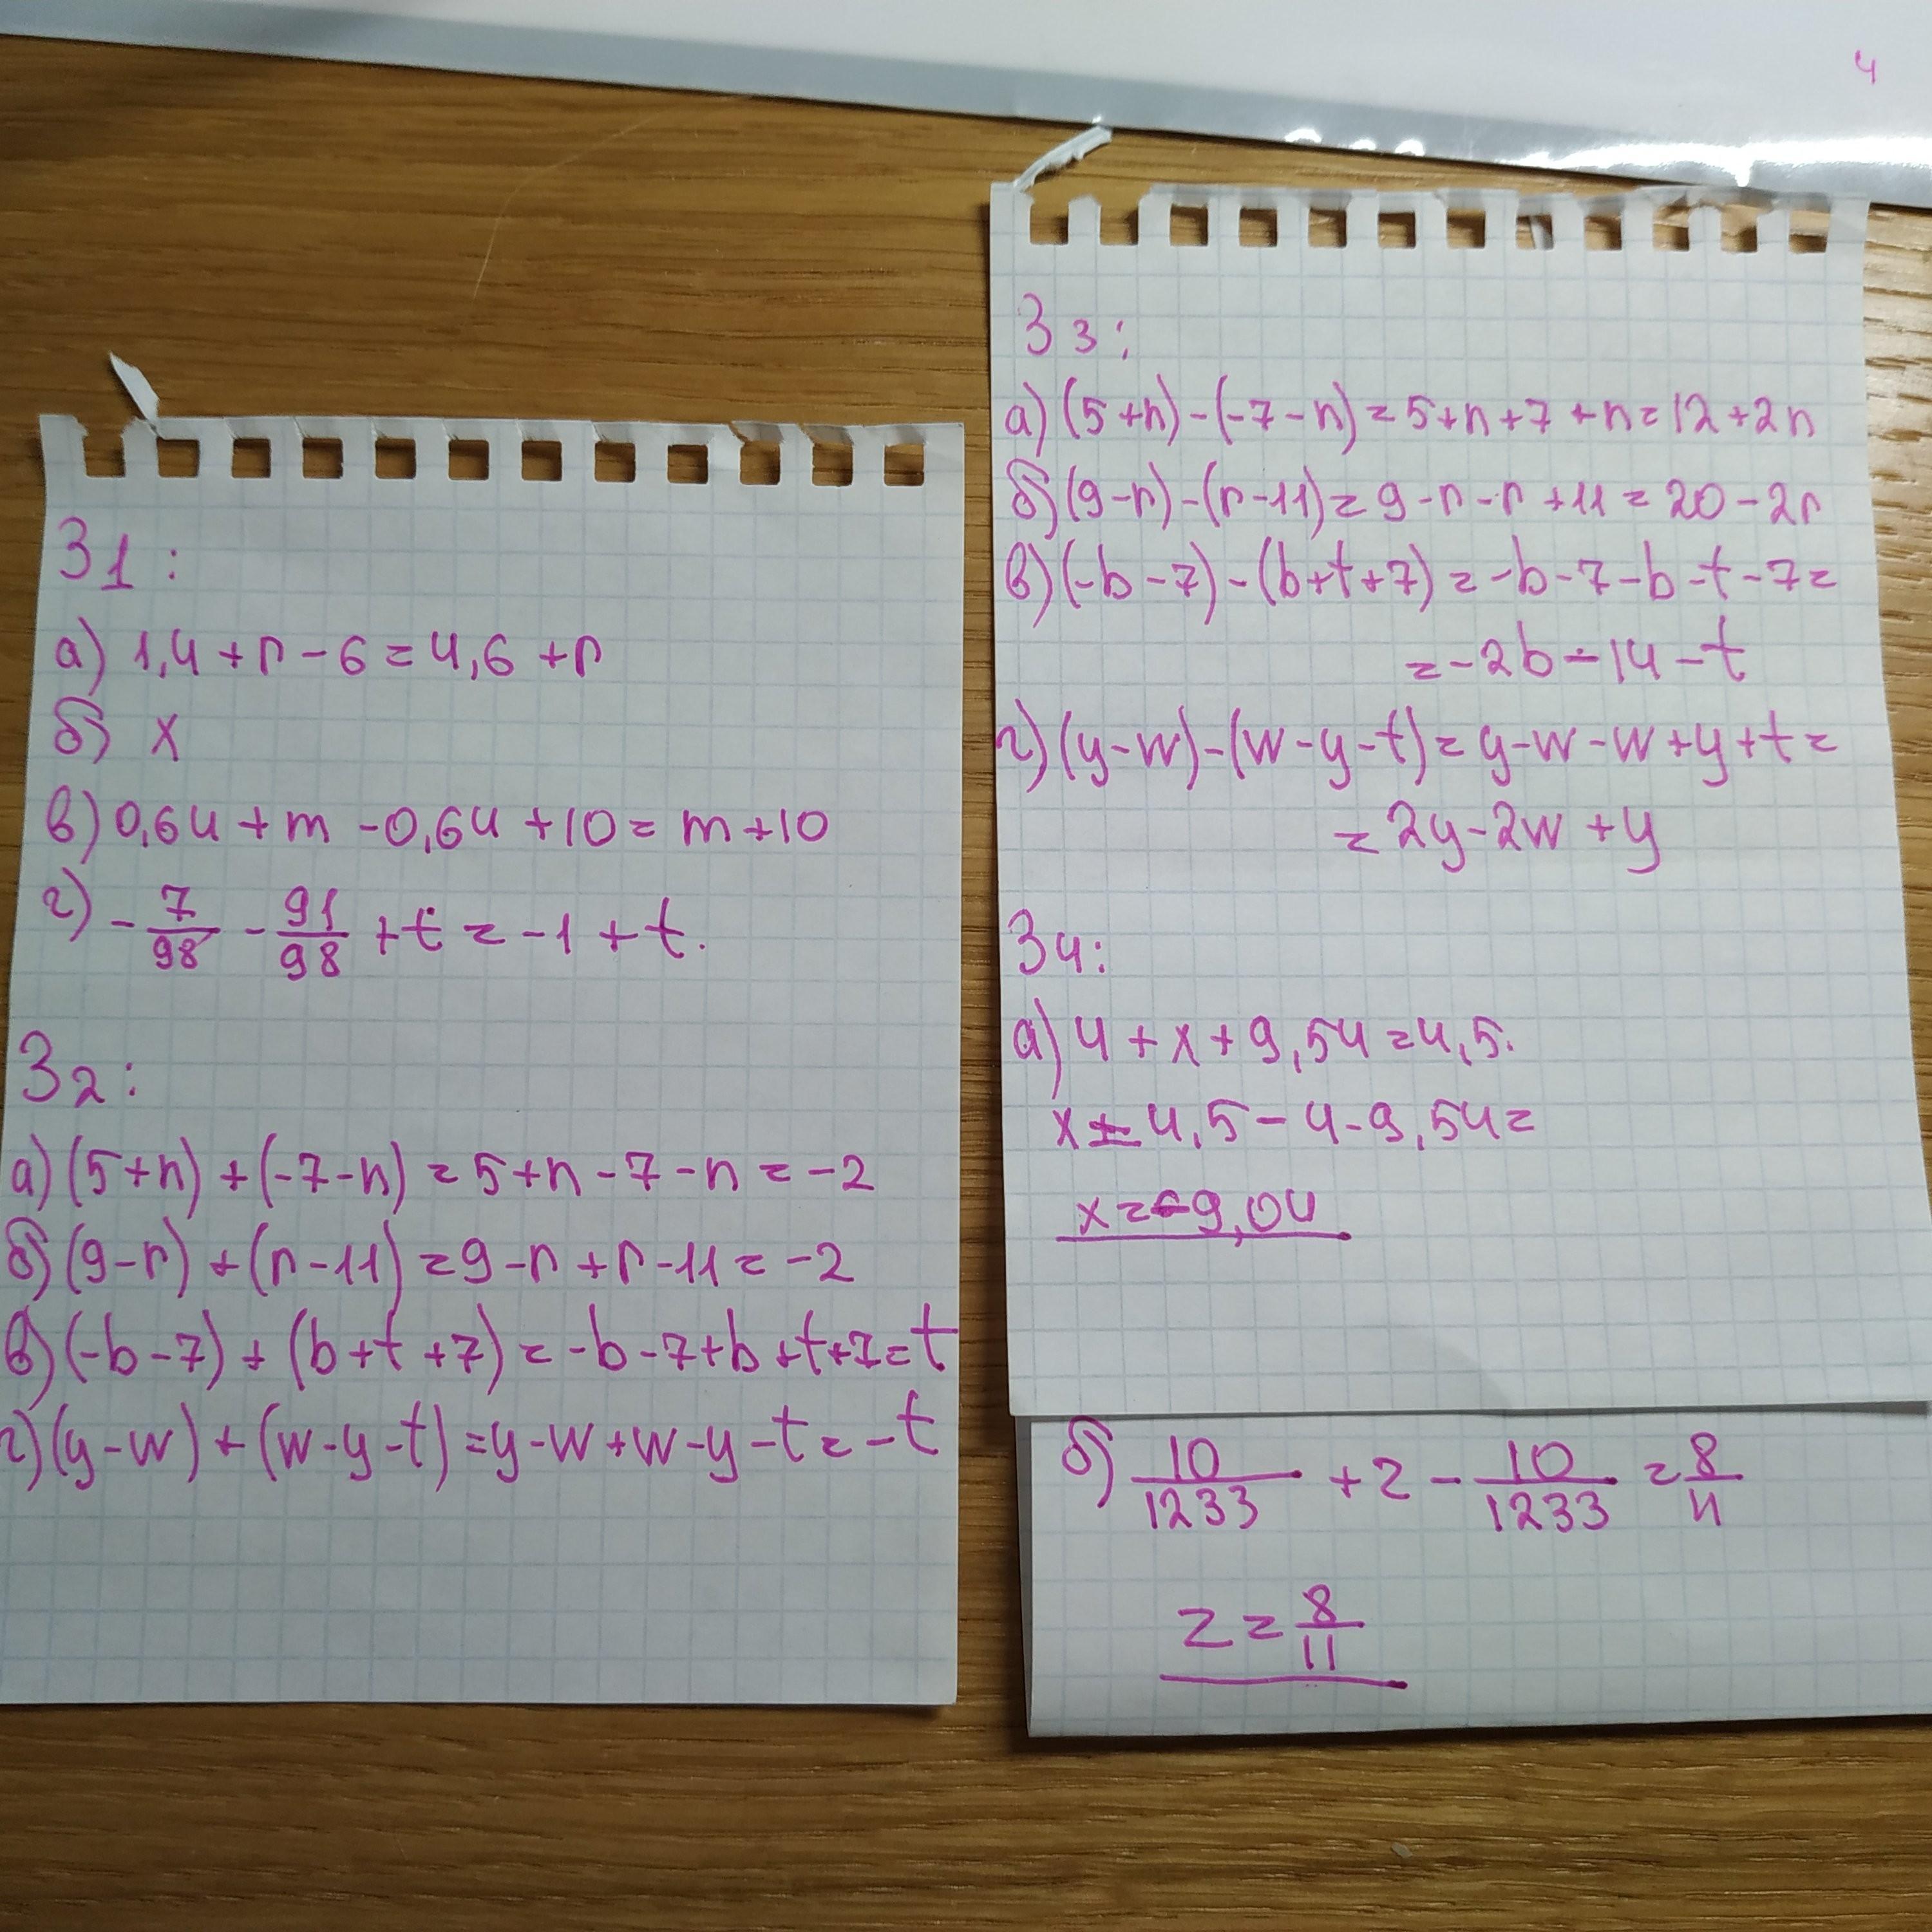 4
31:
а) 1,4 + n - 6 = 4,6 + n
б) x
в) 0,64 + m - 0,64 + 10 = m + 10
г) - 7/98 - 91/98 + t = -1 + t.
32:
а) (5+n) + (-7-n) = 5+n-7-n = -2
б) (9-n) + (n-11) = 9-n+n-11 = -2
в) (-b-7) + (b+t+7) = -b-7+b+t+7=t
г) (y-w) + (w-y-t) = y-w+w-y-t = -t
33:
а) (5+n)-(-7-n) = 5+n+7+n=12+2n
б) (9-n)-(n-11) = 9-n-n+11 = 20-2n
в) (-b-7)-(b+t+7) = -b-7-b-t-7=
= -2b-14-t
г) (y-w)-(w-y-t) = y-w-w+y+t=
= 2y-2w+y
34:
а) 4 + x + 9,54 = 4,5.
x = 4,5 - 4 - 9,54 =
x = -9,04
б) 10/1233 + z - 10/1233 = 8/11
z = 8/11